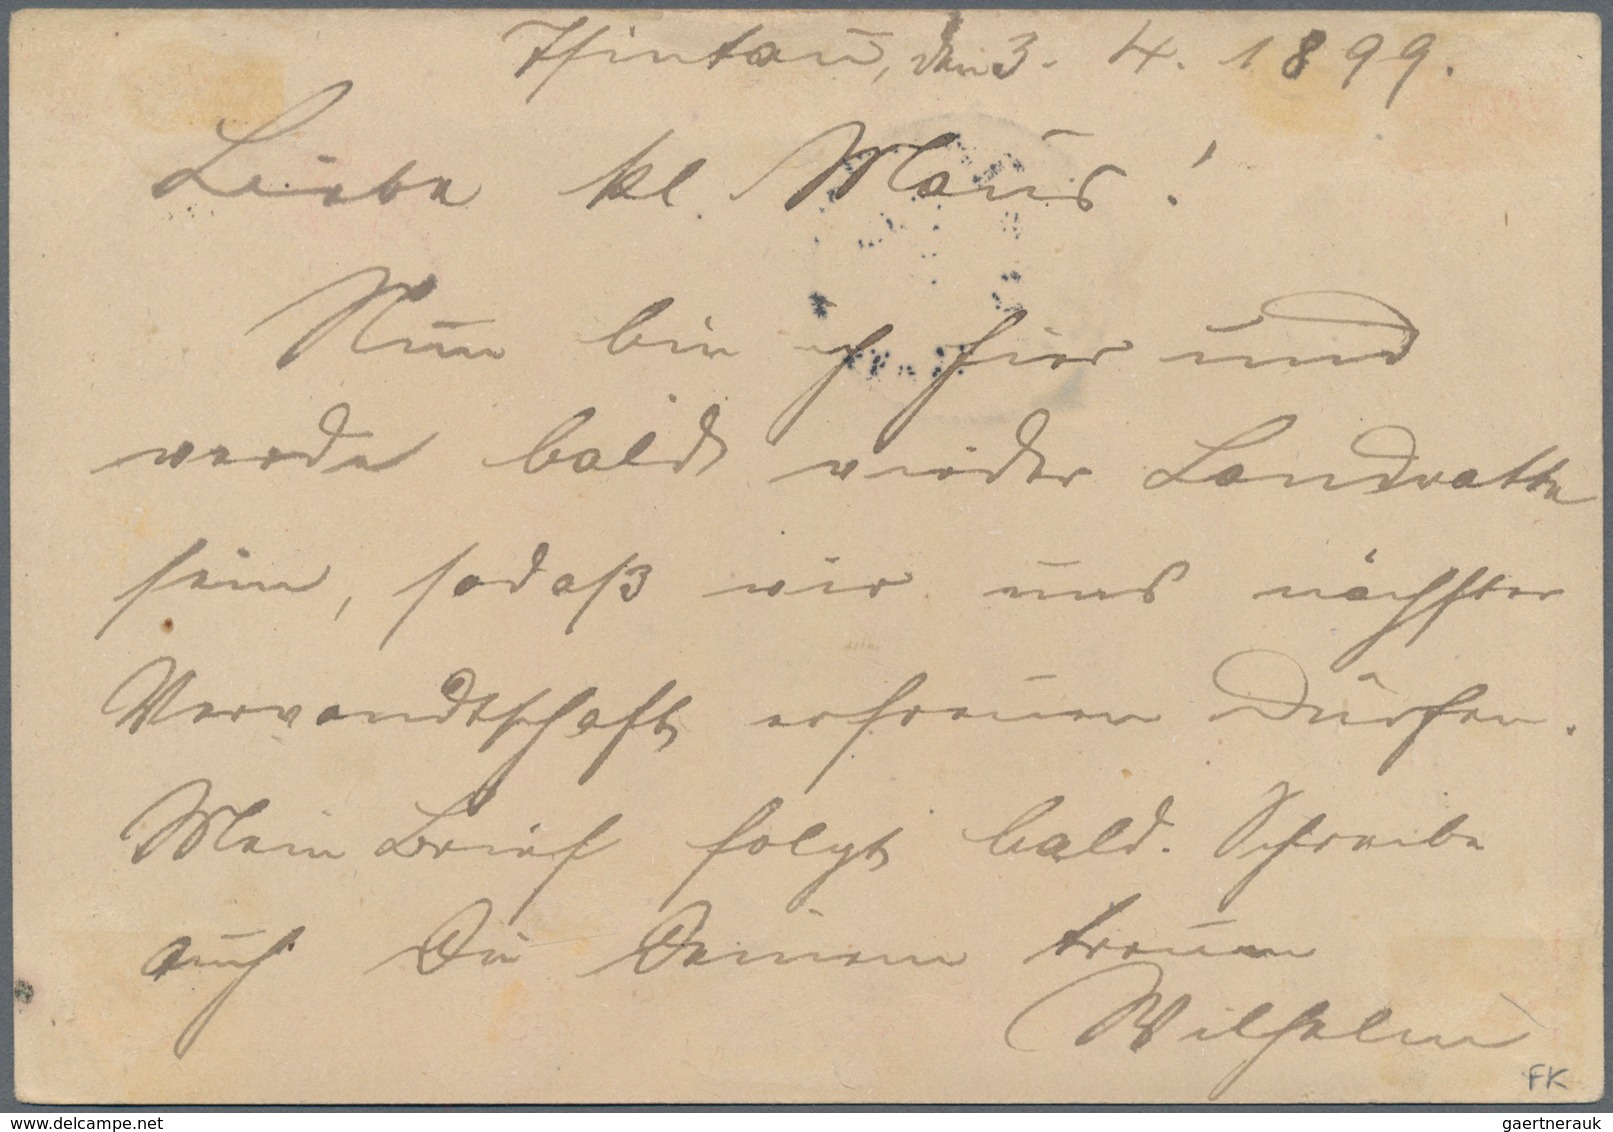 Tsintau, den 3. 4. 1899.
Liebe kl. Maus!
Nun bin ich hier und
werde bald wieder Landratte
sein, sodaß wir uns nächster
Verwandtschaft erfreuen dürfen.
Mein Brief folgt bald. Schreibe
auch Du Deinem treuen
Wilhelm
FK
www.delcampe.net
gaertnerauk